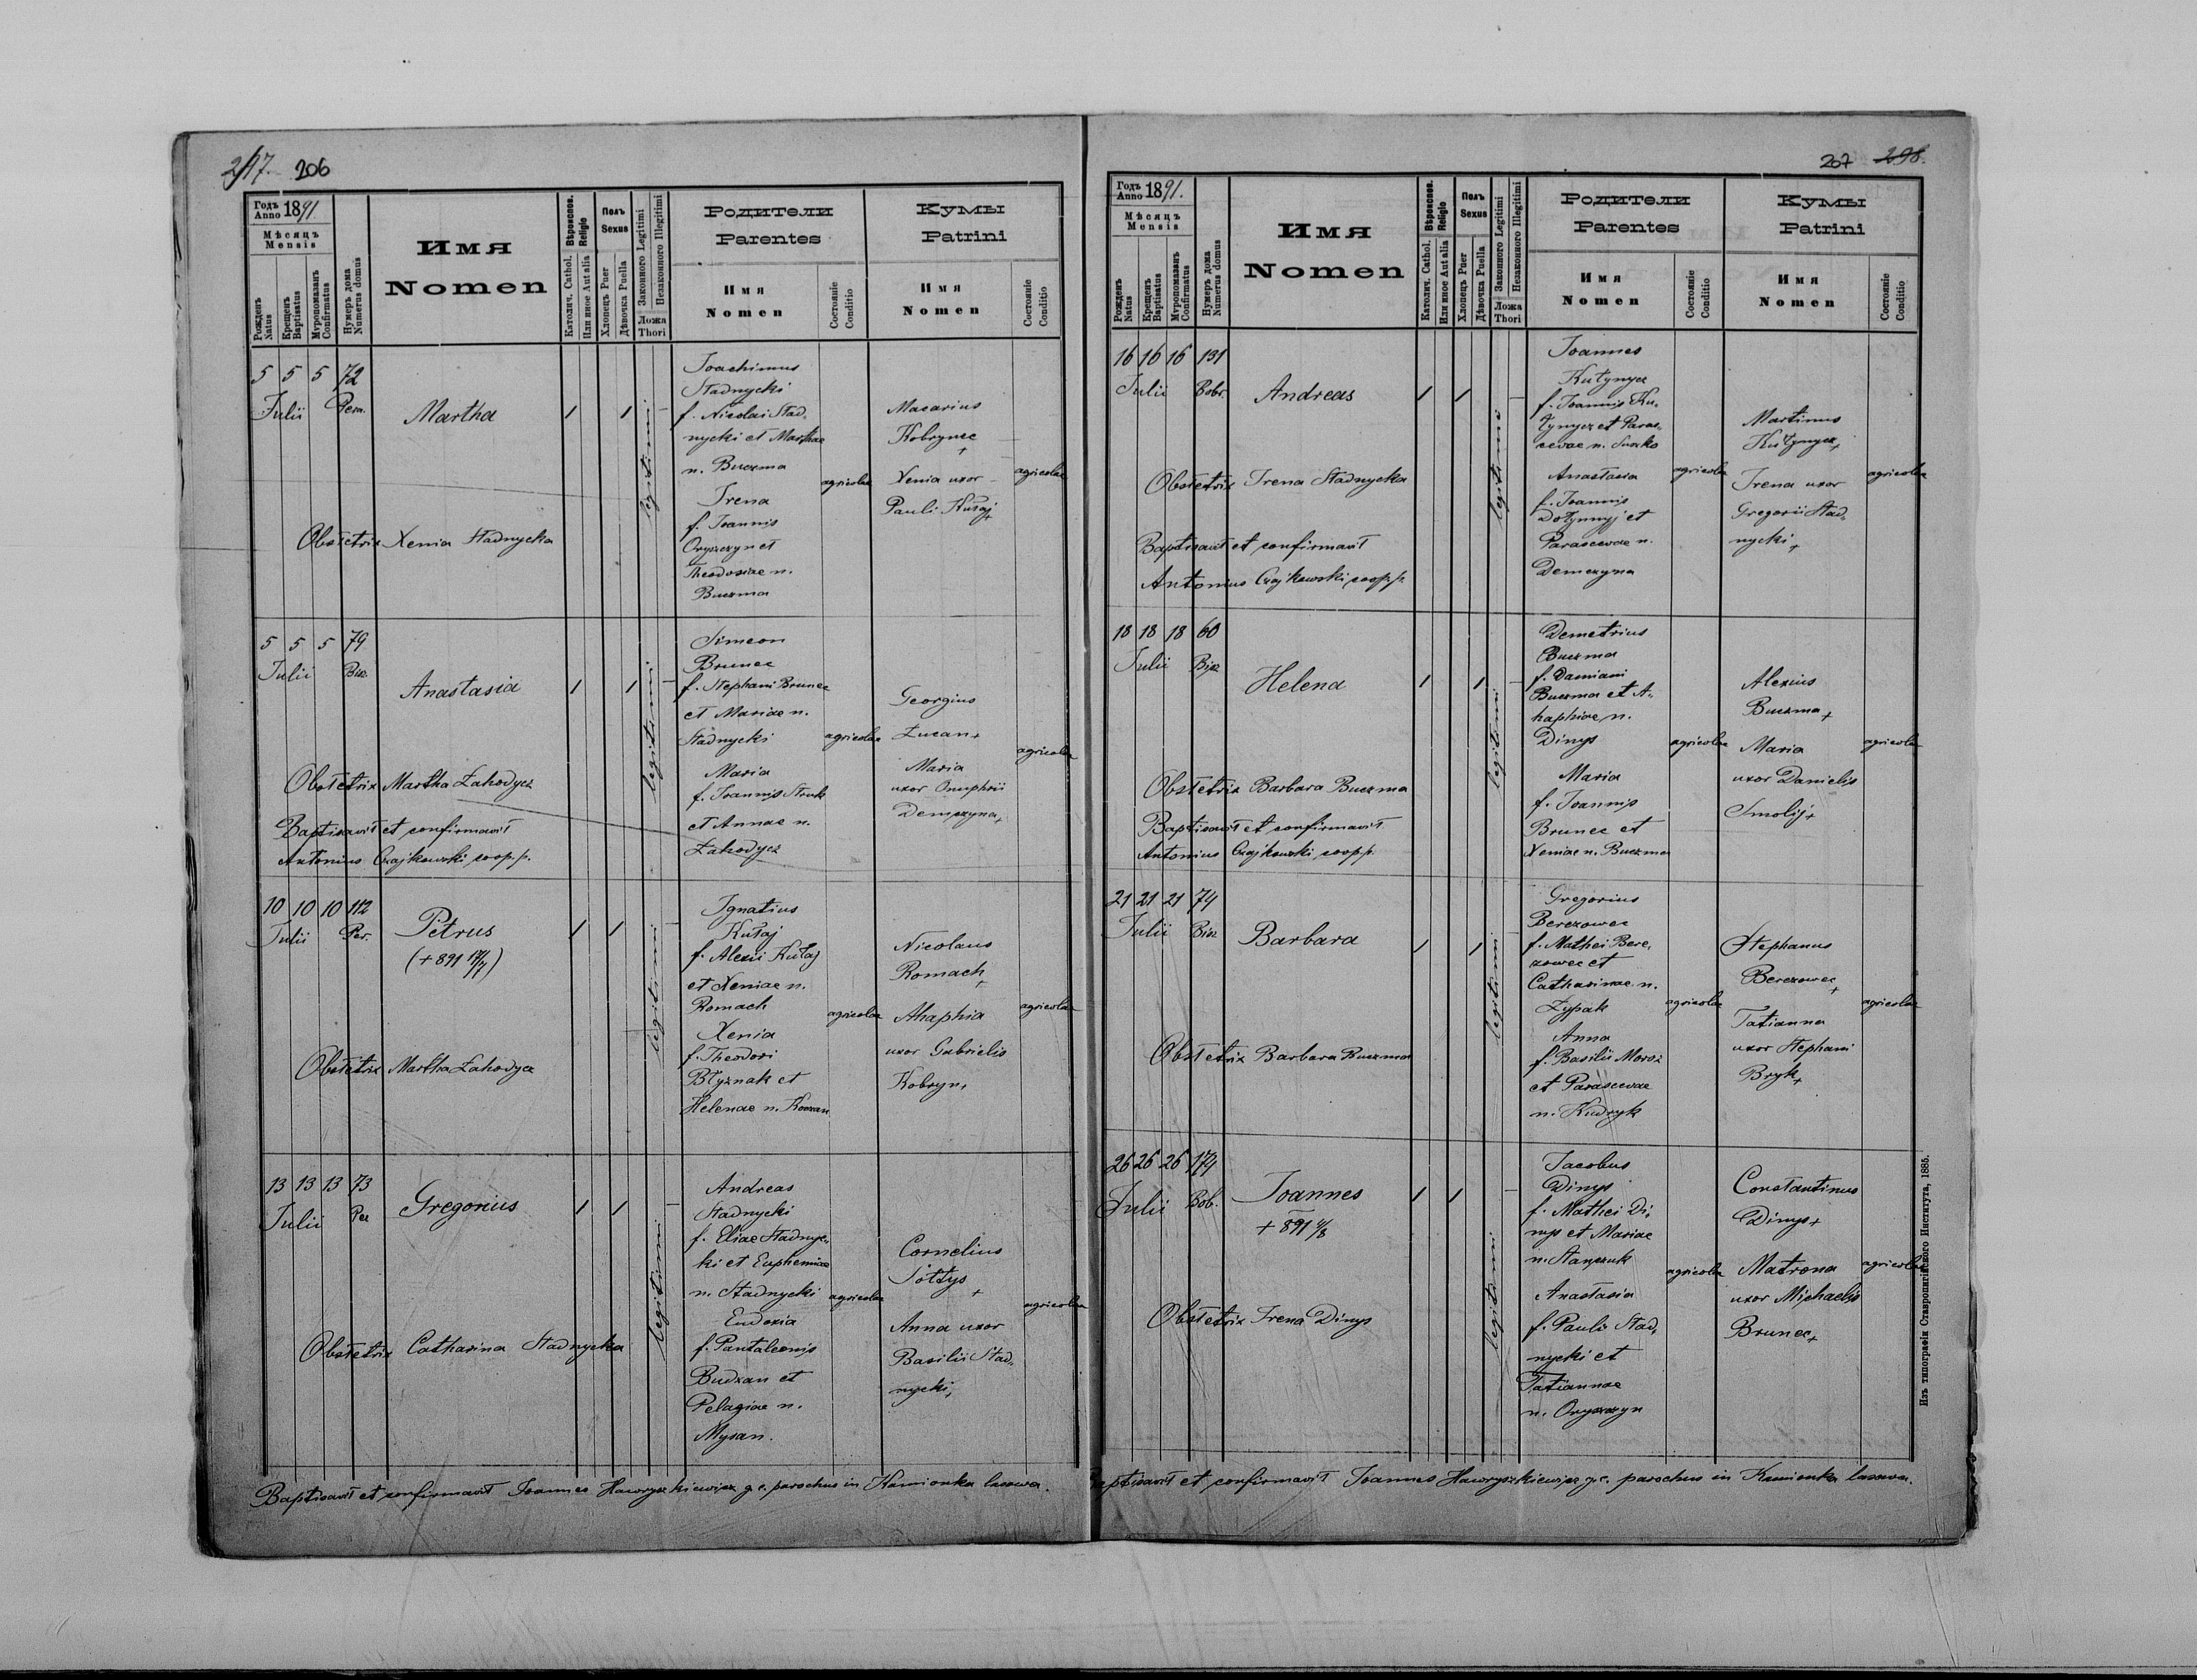 217. 206
Годъ Anno 1891
Мѣсяцъ
Mensis
Рожденъ Natus
Крещенъ Baptisatus
Муропомазанъ Confirmatus
Нумеръ дома Numerus domus
Имя
Nomen
Вѣроиспов. Religio
Католич. Cathol.
Или иное Aut alia
Полъ
Sexus
Хлопецъ Puer
Дѣвочка Puella
Законного Legitimi
Незаконного Illegitimi
Ложа
Thori
Родители
Parentes
Имя
Nomen
Состояніе
Conditio
Кумы
Patrini
Имя
Nomen
Состояніе
Conditio
5 5 5 72
Julii Per.
Martha
legitimi
Joachimus
Stadnycki
f. Nicolai Stad-
nycki et Marthae
n. Buczma
Irena
f. Joannis
Oryszczyn et
Theodosiae n.
Buczma
agricolae
Macarius
Kobrynec
+
Xenia uxor
Pauli Kułaj
+
agricolae
Obstetrix Xenia Stadnycka
5 5 5 79
Julii Bisz
Anastasia
legitimi
Simeon
Brunec
f. Stephani Brunec
et Mariae n.
Stadnycki
Maria
f. Joannis Struk
et Annae n.
Zahodycz
agricolae
Georgius
Łucan+
Maria
uxor Onuphrii
Demczyna+
agricolae
Obstetrix Martha Zahodycz
Baptisavit et confirmavit
Antonius Czajkowski coop. p.
10 10 10 112
Julii Per.
Petrus
legitimi
Ignatius
Kułaj
f. Alexii Kułaj
et Xeniae n.
Romach
Xenia
f. Theodori
Błyznak et
Helenae n.
agricolae
Nicolaus
Romach
+
Ahaphia
uxor Gabrielis
Kobryn+
agricolae
Obstetrix Martha Zahodycz
13 13 13 73
Julii Per
Gregorius
legitimi
Andreas
Stadnycki
f. Eliae Stadnyc-
ki et Euphemiae
n. Stadnycki
Eudoxia
f. Pantaleonis
Budzan et
Pelagiae n.
Mysan.
agricolae
Cornelius
Sołtys
+
Anna uxor
Basilii Stad-
nycki+
agricolae
Obstetrix Catharina Stadnycka
Baptisavit et confirmavit Joannes Hawryszkiewicz g. c. parochus in Kamionka lasowa.
207 298.
Годъ Anno 1891.
Мѣсяцъ
Mensis
Рожденъ Natus
Крещенъ Baptisatus
Муропомазанъ Confirmatus
Нумеръ дома Numerus domus
Имя
Nomen
Вѣроиспов. Religio
Католич. Cathol.
Или иное Aut alia
Полъ
Sexus
Хлопецъ Puer
Дѣвочка Puella
Законного Legitimi
Незаконного Illegitimi
Ложа
Thori
Родители
Parentes
Имя
Nomen
Состояніе
Conditio
Кумы
Patrini
Имя
Nomen
Состояніе
Conditio
16 16 16 131
Julii Bobr.
Andreas
legitimi
Joannes
Kutynycz
f. Joannis Ku-
tynycz et Paras-
cevae n. Suszko
Anastasia
f. Joannis
Dołynnyj et
Parascevae n.
Demczyna
agricolae
Martinus
Kutynycz+
Irena uxor
Gregorii Stad-
nycki+
agricolae
Obstetrix Irena Stadnycka
Baptisavit et confirmavit
Antonius Czajkowski coop. p.
18 18 18 60
Julii Bisz
Helena
legitimi
Demetrius
Buczma
f. Damiani
Buczma et A-
haphiae n.
Dinys
Maria
f. Joannis
Brunec et
Xeniae n. Buczma
agricolae
Alexius
Buczma+
Maria
uxor Danielis
Smolij+
agricolae
Obstetrix Barbara Buczma
Baptisavit et confirmavit
Antonius Czajkowski coop. p.
21 21 21 74
Julii Bisz
Barbara
legitimi
Gregorius
Berezowec
f. Mathei Bere-
zowec et
Catharinae n.
Zypak
Anna
f. Basilii Moroz
et Parascevae
n. Kudryk
agricolae
Stephanus
Berezowec
+
Tatianna
uxor Stephani
Bryk+
agricolae
Obstetrix Barbara Buczma
26 26 26 174
Julii Bob.
Joannes
+ 891 /8
legitimi
Jacobus
Dinys
f. Mathei Di-
nys et Mariae
n. Stanczuk
Anastasia
f. Pauli Stad-
nycki et
Tatiannae
n. Oryszczyn
agricolae
Constantinus
Dinys+
Matrona
uxor Michaelis
Brunec+
agricolae
Obstetrix Irena Dinys
Baptisavit et confirmavit Joannes Hawryszkiewicz g. c. parochus in Kamionka lasowa.
Изъ типографіи Ставропигійского Института, 1885.